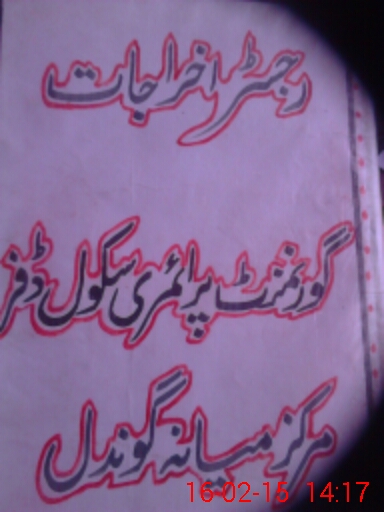 رجسٹر اخراجات
گورنمنٹ پرائمری سکول ڈفر
مرکز میانہ گوندل
16-02-15 14:17